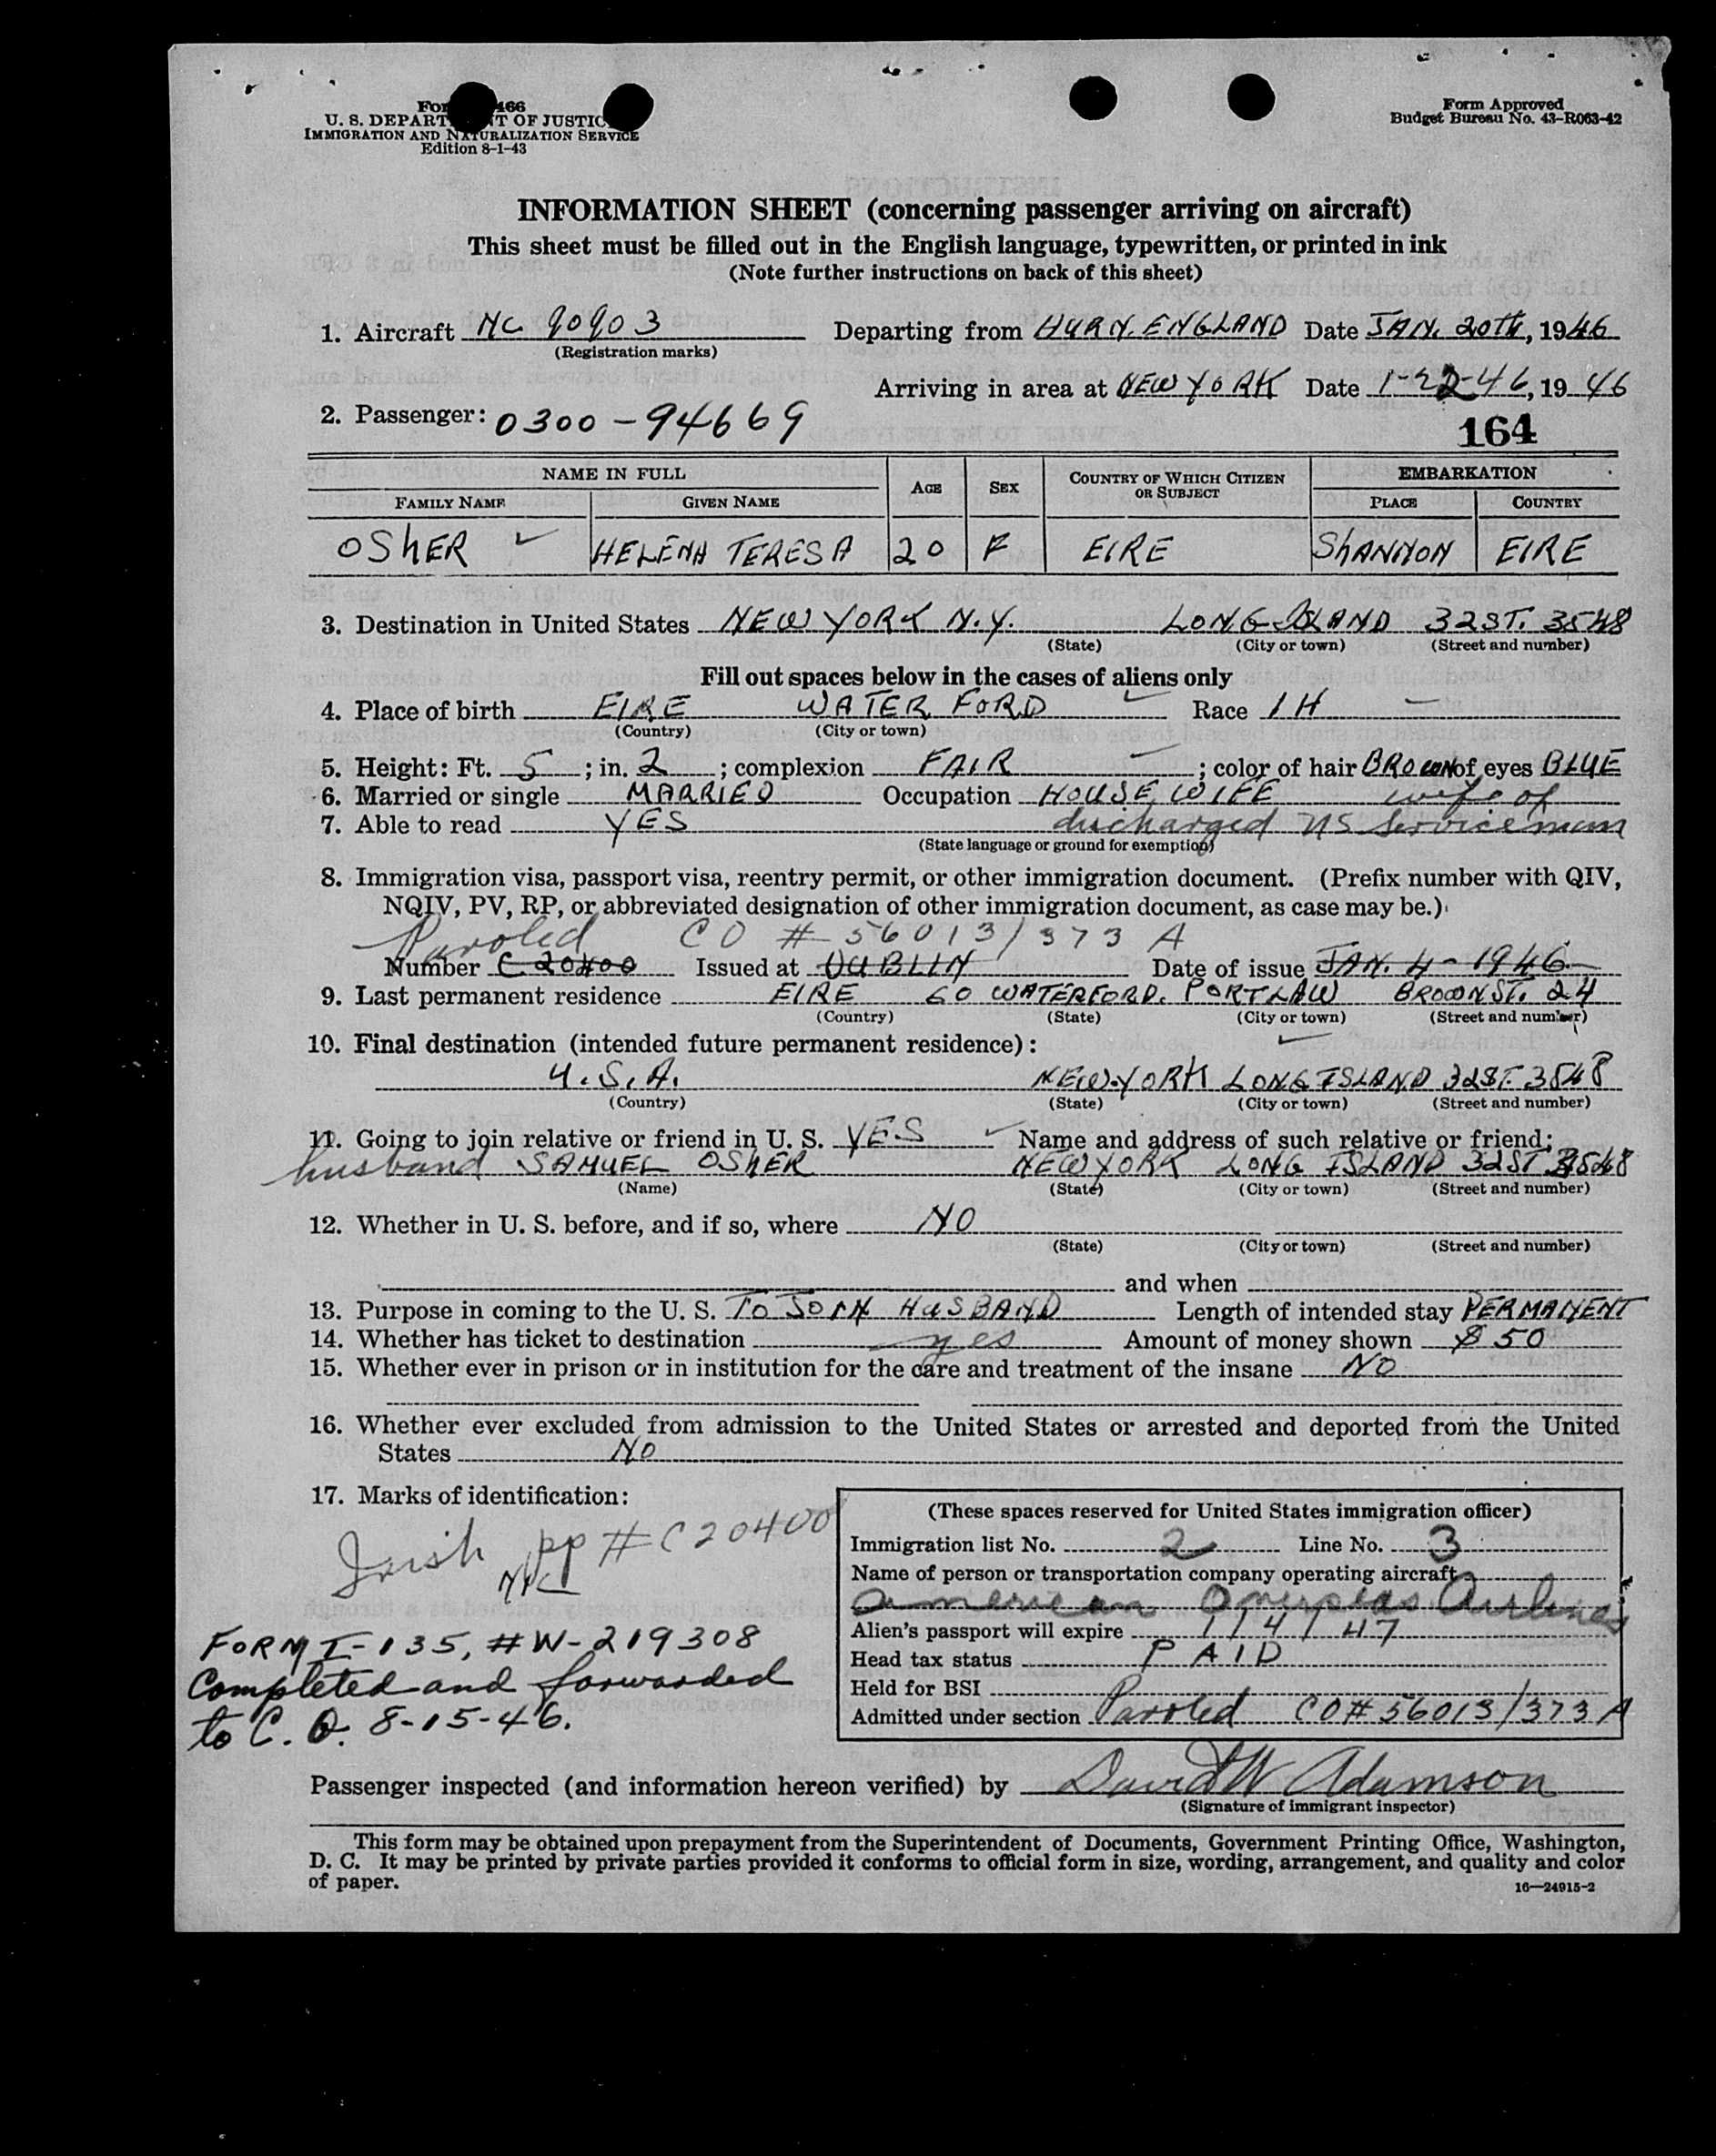 For 466
U. S. DEPART NT OF JUSTIC
IMMIGRATION AND NATURALIZATION SERVICE
Edition 8-1-43
Form Approved
Budget Bureau No. 43-R063-42
INFORMATION SHEET (concerning passenger arriving on aircraft)
This sheet must be filled out in the English language, typewritten, or printed in ink
(Note further instructions on back of this sheet)
1. Aircraft NC 90903 Departing from HURN. ENGLAND Date JAN. 20TH, 1946
(Registration marks)
Arriving in area at NEW YORK Date 1-22-46, 1946
2. Passenger: 0300-94669
164
NAME IN FULL AGE SEX COUNTRY OF WHICH CITIZEN OR SUBJECT EMBARKATION
FAMILY NAME GIVEN NAME PLACE COUNTRY
OSHER HELENA TERESA 20 F EIRE SHANNON EIRE
3. Destination in United States NEW YORK N.Y. LONG ISLAND 32ST. 3548
(State) (City or town) (Street and number)
Fill out spaces below in the cases of aliens only
4. Place of birth EIRE WATERFORD Race IH
(Country) (City or town)
5. Height: Ft. 5; in. 2; complexion FAIR; color of hair BROWN of eyes BLUE
6. Married or single MARRIED Occupation HOUSE WIFE wife of
7. Able to read YES discharged US Serviceman
(State language or ground for exemption)
8. Immigration visa, passport visa, reentry permit, or other immigration document. (Prefix number with QIV,
NQIV, PV, RP, or abbreviated designation of other immigration document, as case may be.)
Paroled CO # 56013/373 A
Number C 20400 Issued at DUBLIN Date of issue JAN. 4-1946
9. Last permanent residence EIRE CO WATERFORD. PORTLAW BROWN ST. 24
(Country) (State) (City or town) (Street and number)
10. Final destination (intended future permanent residence):
U.S.A. NEW-YORK LONG ISLAND 32ST. 3548
(Country) (State) (City or town) (Street and number)
11. Going to join relative or friend in U. S. YES Name and address of such relative or friend:
husband SAMUEL OSHER NEW YORK LONG ISLAND 32ST 3548
(Name) (State) (City or town) (Street and number)
12. Whether in U. S. before, and if so, where NO
(State) (City or town) (Street and number)
and when
13. Purpose in coming to the U. S. TO JOIN HUSBAND Length of intended stay PERMANENT
14. Whether has ticket to destination yes Amount of money shown $ 50
15. Whether ever in prison or in institution for the care and treatment of the insane NO
16. Whether ever excluded from admission to the United States or arrested and deported from the United
States NO
17. Marks of identification:
Irish pp # C20400
FORM I-135, #W-219308
Completed and forwarded
to C. O. 8-15-46.
(These spaces reserved for United States immigration officer)
Immigration list No. 2 Line No. 3
Name of person or transportation company operating aircraft
American Overseas Airlines
Alien's passport will expire 1/4/47
Head tax status PAID
Held for BSI
Admitted under section Paroled CO# 56013/373 A
Passenger inspected (and information hereon verified) by David W Adamson
(Signature of immigrant inspector)
This form may be obtained upon prepayment from the Superintendent of Documents, Government Printing Office, Washington,
D. C. It may be printed by private parties provided it conforms to official form in size, wording, arrangement, and quality and color
of paper.
16—24915-2